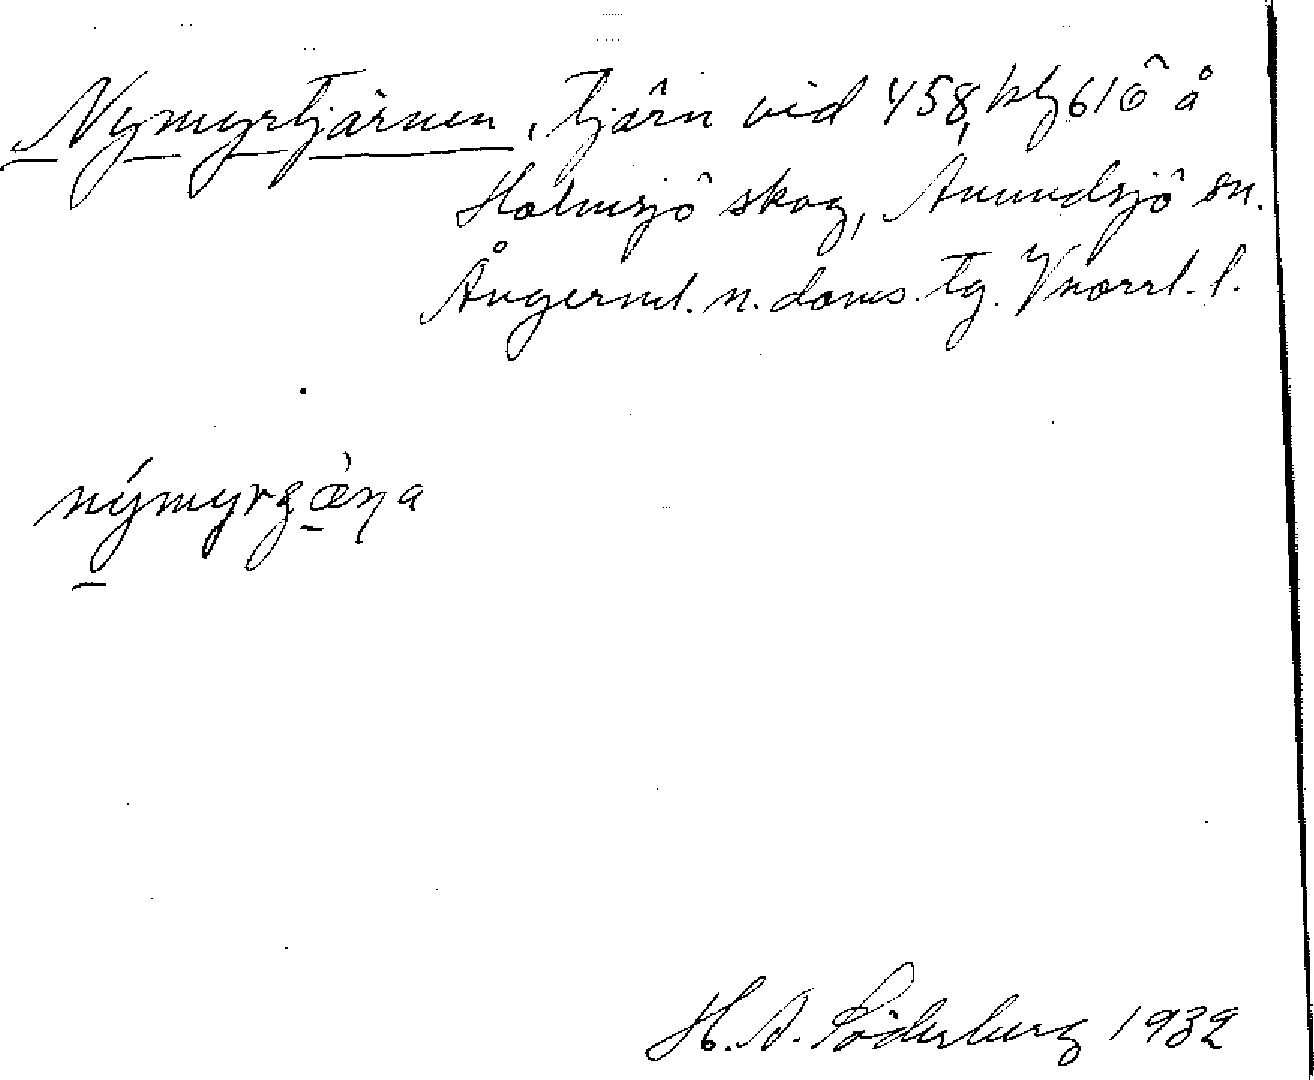 Nymyrtjärnen, tjärn vid 458, blz 61ö å
Holmsjö skog, Anundsjö sn.
Ångerml. n. doms. tg. Vnorrl. l.
nýmyrgæ̀ṇa
H. A. Söderberg 1932